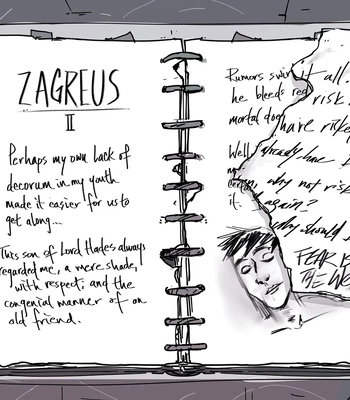 ZAGREUS
II
Perhaps my own lack of
decorum in my youth
made it easier for us to
get along...
This son of Lord Hades always
regarded me, a mere shade,
with respect, and the
congenial manner of an
old friend.
Rumors swirl
he bleeds red
mortal dog
Well
it.
it all.
risk
have risked
already have
why not risk
again?
Why should I
FEAR IS
THE WE